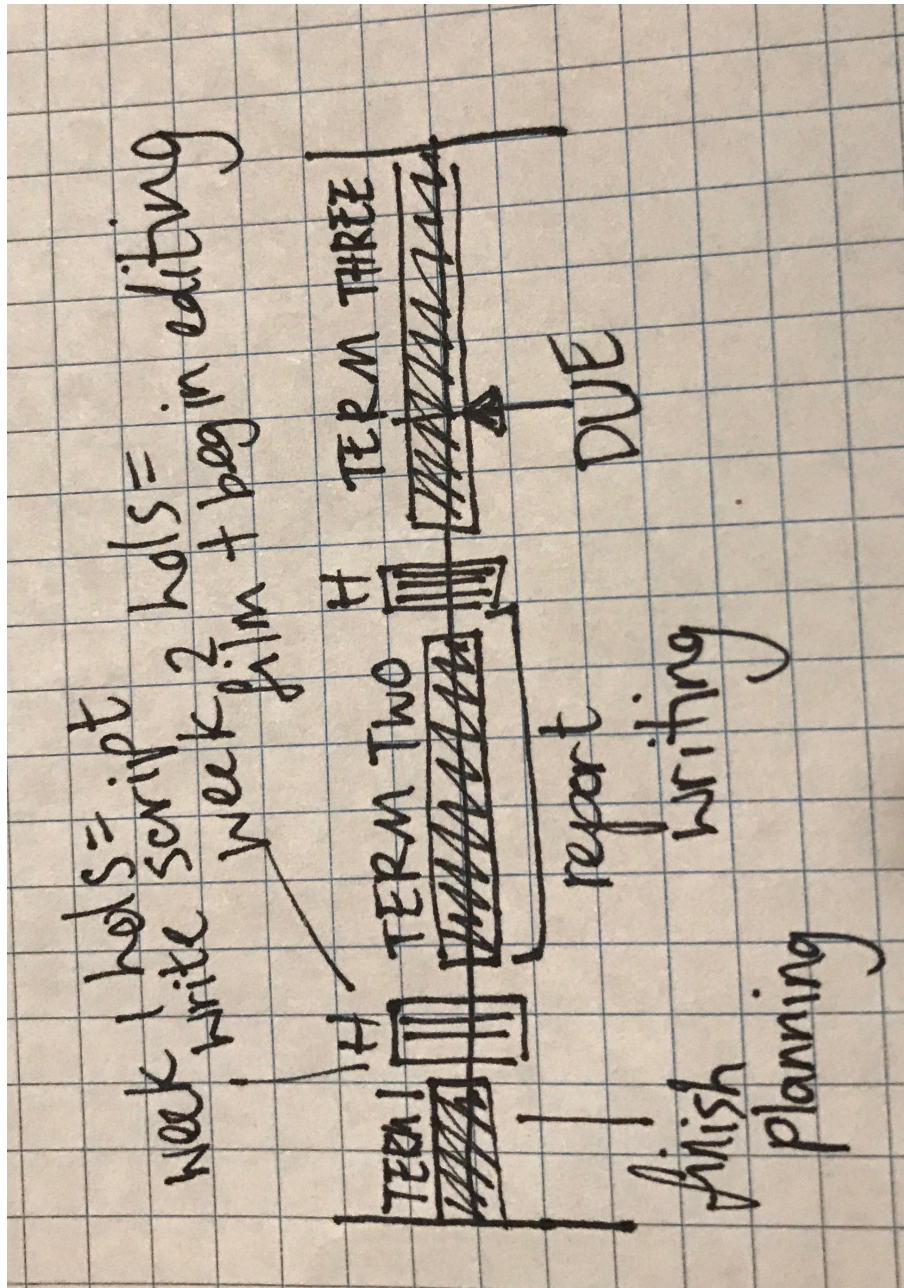 week 1 hols =
write script
week 2 hols =
film + begin editing
TERM 1
H
TERM TWO
H
TERM THREE
finish
planning
report
writing
DUE